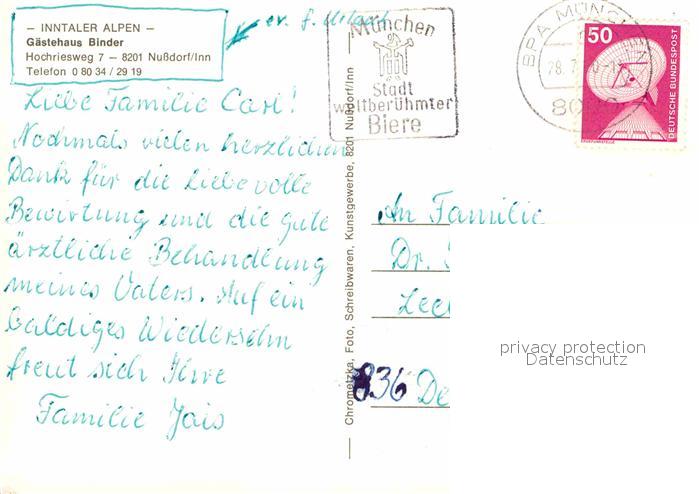 – INNTALER ALPEN –
Gästehaus Binder
Hochriesweg 7 – 8201 Nußdorf/Inn
Telefon 0 80 34 / 29 19
ev. f. Urlaub
Liebe Familie Carl!
Nochmals vielen herzlichen
Dank für die liebevolle
Bewirtung und die gute
ärztliche Behandlung
meines Vaters. Auf ein
baldiges Wiedersehn
freut sich Ihre
Familie Jais
Chrometzka, Foto, Schreibwaren, Kunstgewerbe, 8201 Nußdorf/Inn
München
Stadt
weltberühmter
Biere
BPA MÜNCH
28.7
80
50
DEUTSCHE BUNDESPOST
ERDFUNKSTELLE
An Familie
Dr.
836 De
privacy protection
Datenschutz